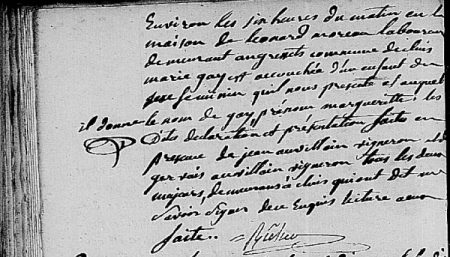 Environ les six heures du matin en la
maison de leonard moreau laboureur
demeurant commune de cluis
marie gay est accouchée d'un enfant du
sexe feminin qu'il nous presente et auquel
il donne le nom de gay prénom margueritte les
Dites declaration et présentation faite en
presence de jean auvillain vigneron et de
gervais auvillain vigneron tous les deux
majeurs, demeurans à cluis qui ont dit ne
Savoir Signer de ce Enquis lecture a eux
faite..